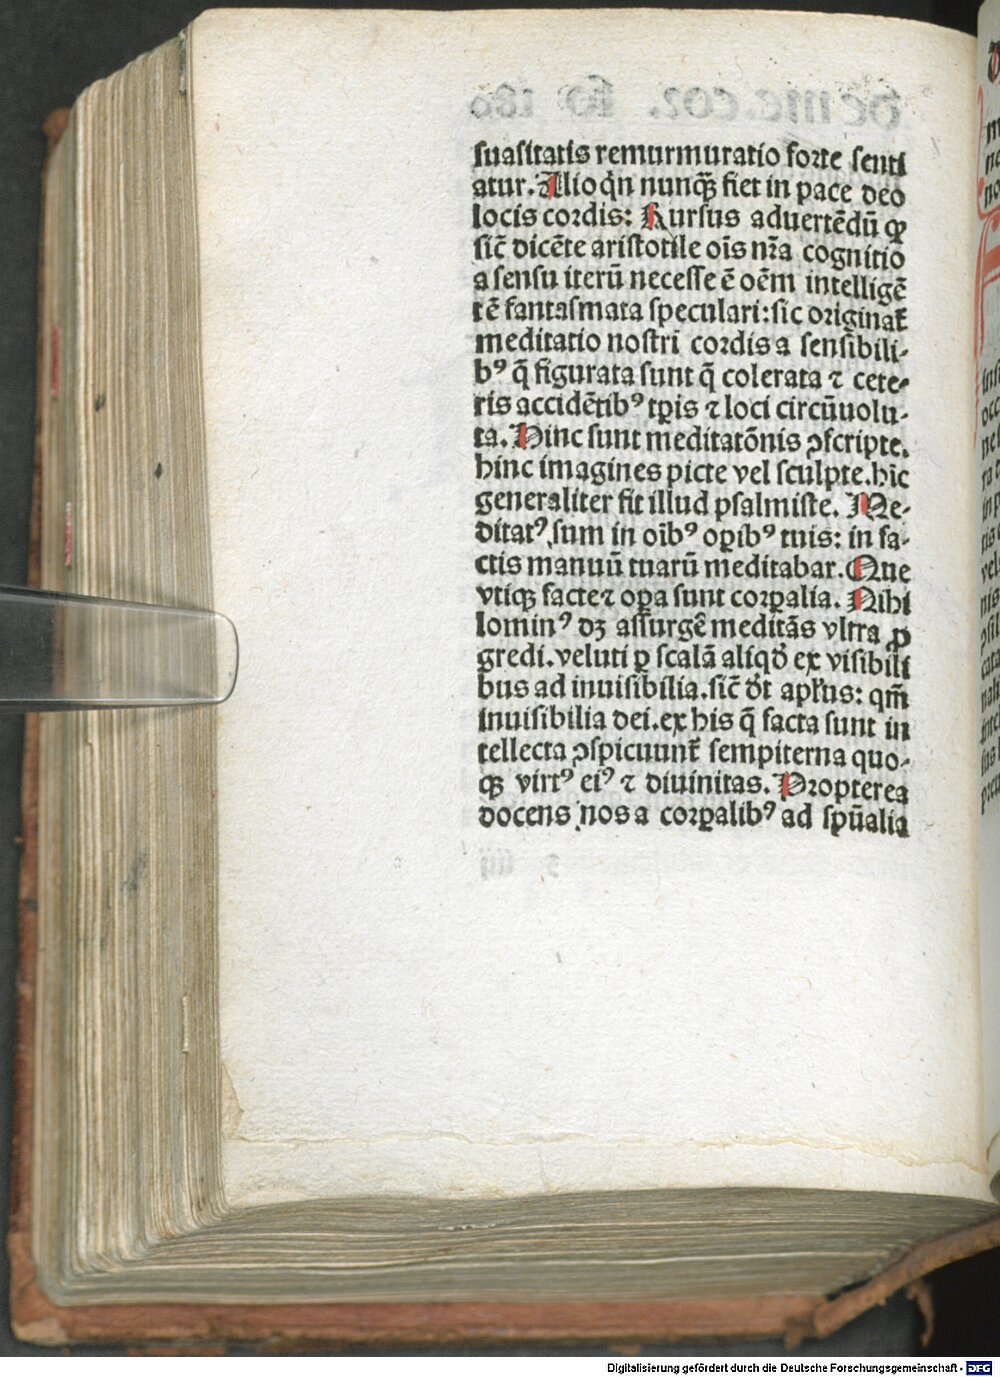 suasitatis remurmuratio forte senti
atur. Alioqn̄ nunqȝ̄ fiet in pace deo
locis cordis: Rursus aduertēdū ꝙ
sic̄ dicēte aristotile oīs nr̄a cognitio
a sensu iterū necesse ē oēm intelligē
tē fantasmata speculari: sic originał
meditatio nostri cordis a sensibili-
bꝰ q̄ figurata sunt q̄ colerata ⁊ cete-
ris accidētibꝰ tꝑis ⁊ loci circūuolu-
ta. Hinc sunt meditatōnis ꝯscripte.
hinc imagines picte vel sculpte. hīc
generaliter fit illud psalmiste. Me-
ditatꝰ sum in oībꝰ oꝑibꝰ tuis: in fa-
ctis manuū tuarū meditabar. Que
vtiqȝ facte⁊ oꝑa sunt corꝑalia. Nihi
lominꝰ dȝ assurgē meditās vltra ꝓ
gredi. veluti ꝑ scalā aliqd̄ ex visibili
bus ad inuisibilia. sic̄ dt̄ aptus: qm̄
inuisibilia dei. ex his q̄ facta sunt in
tellecta ꝯspicuunt̄ sempiterna quo-
qȝ virtꝰ eiꝰ ⁊ diuinitas. Propterea
docens nos a corꝑalibꝰ ad spūalia
Digitalisierung gefördert durch die Deutsche Forschungsgemeinschaft - DFG